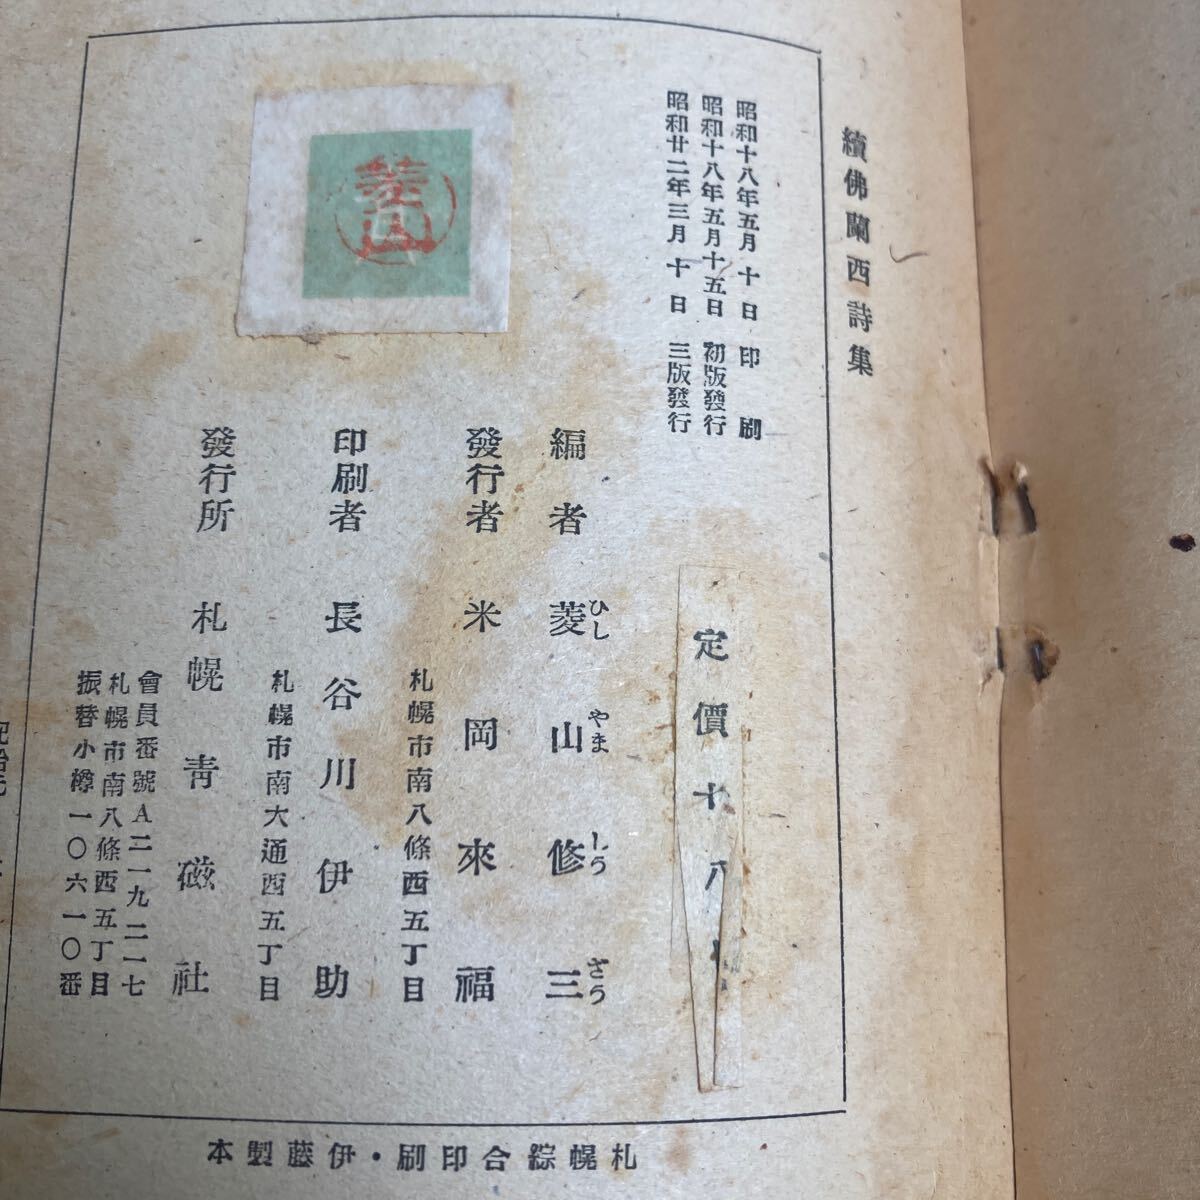 續佛蘭西詩集
昭和十八年五月十日 印刷
昭和十八年五月十五日 初版發行
昭和廿二年三月十日 三版發行
定價十八
編者 菱山修三
ひし やま しう ざう
發行者 米岡來福
札幌市南八條西五丁目
印刷者 長谷川伊助
札幌市南大通西五丁目
發行所 札幌靑磁社
會員番號A二一九二一七
札幌市南八條西五丁目
振替小樽一〇六一〇番
菱山
札幌綜合印刷・伊藤製本